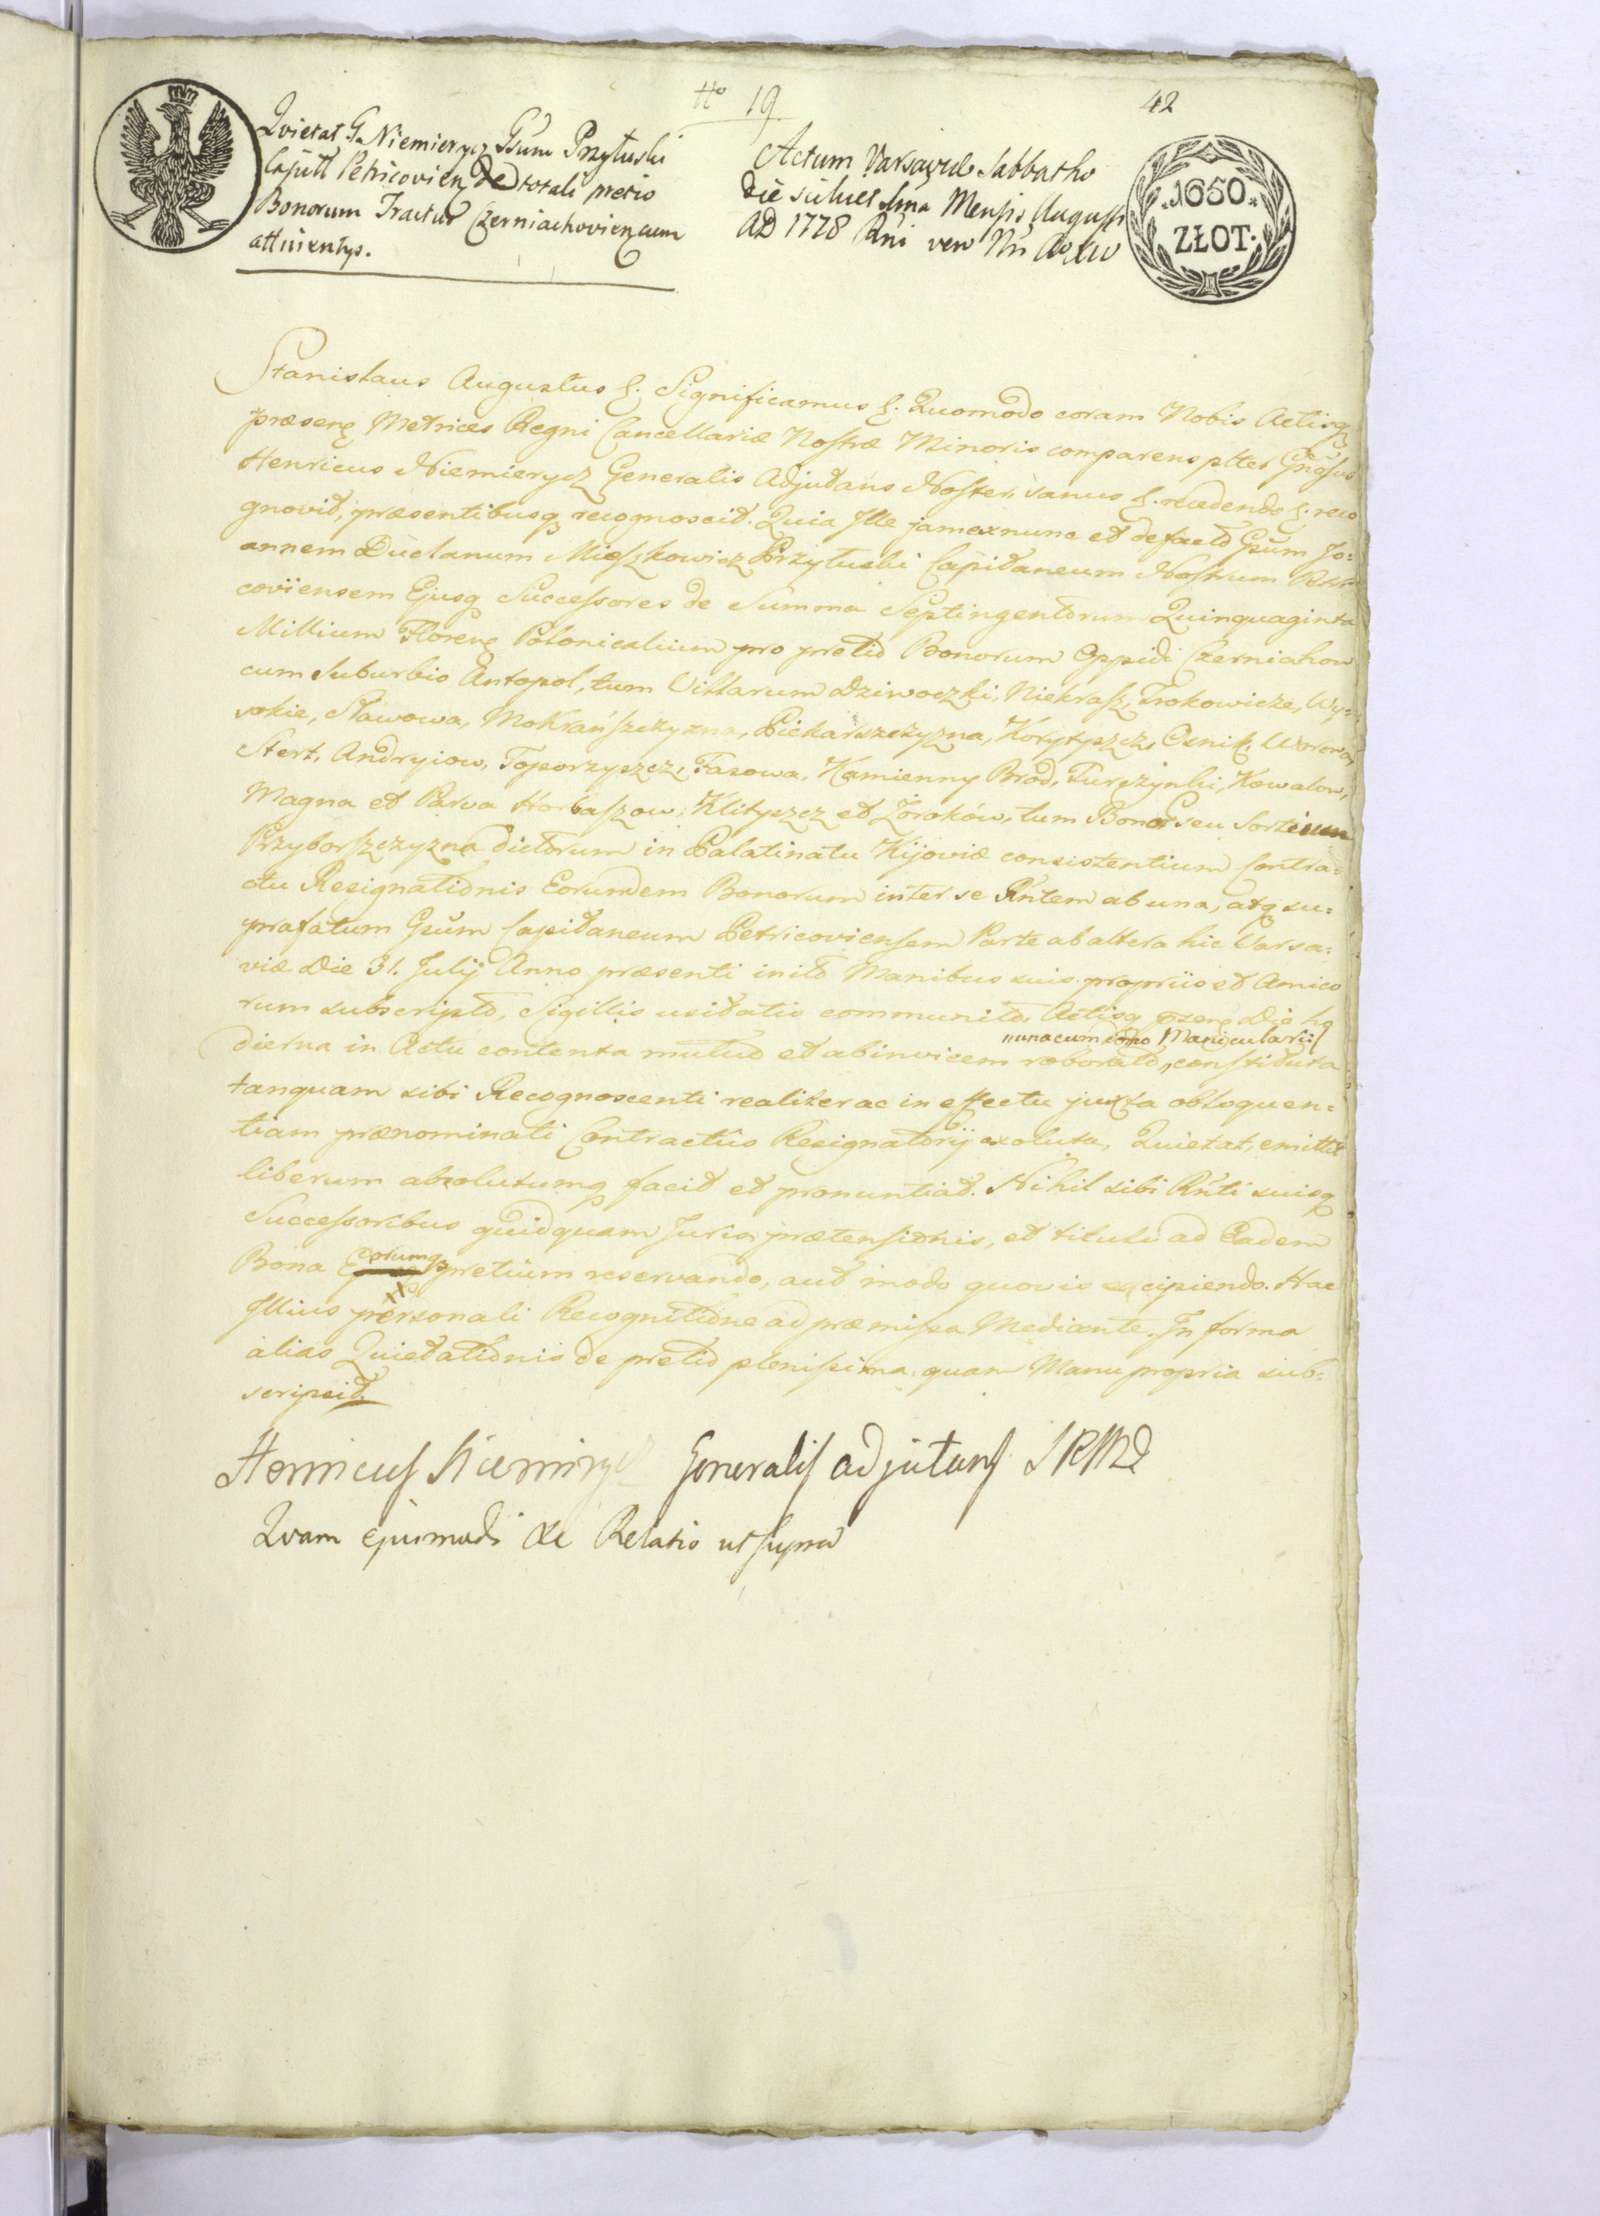 No 19
42
Quietat G. Niemierycz Gsum Przyłuski
Capitt Petricovien de totali pretio
Bonorum Tractus Czerniachovien cum
attinentys.
Actum Varsaviae Sabbatho
die scilicet 1ma Mensis Augusti
AD 1778 Rni vero Nri
1650
ZŁOT.
Stanislaus Augustus &. Significamus &. Quomodo coram Nobis Actisq
praesenq Metrices Regni Cancellariae Nostrae Minoris comparens plter Gnosus
Henricus Niemierycz Generalis Adjudans Noster, sanus &. recedendo &. reco
gnovit, praesentibusq recognoscit. Quia Ille jam ex nunc et de facto Gsum Jo=
annem Duclanum Mieszkowicz Przyłuski Capitaneum Nostrum Petri
coviensem Ejusq Successores de Summa Septingentorum Quinquaginta
Millium Florenq Polonicalium pro pretio Bonorum Oppidi Czerniahow
cum Suburbio Antopol, tum Villarum Dziwoczki, Niekrasz, Trokowicze, Wy=
sokie, Sławowa, Mokrańszczyzna, Piekarszczyzna, Korytyszcz, Osnik,
Stert, Andryiow, Toporzyszcz, Fasowa, Kamienny Brod, Turczynki, Kowalow,
Magna et Parva Horbaszow, Klityszcz et Żoroków, tum Bonor seu Sortium
Przyborszczyzna dictorum in Palatinatu Kijoviae consistentium Contra=
ctu Resignationis Eorundem Bonorum inter se Rntem ab una, atq su=
prafatum Gsum Capitaneum Petricoviensem Parte ab altera hic Varsa=
viae Die 31. Julij Anno praesenti inito Manibus suis propriis et Amico
rum subscripto, Sigillis usitatis communito, Actisq Die ho
unacum dono Manicularii
dierna in Actu contenta mutuo et abinvicem roborato, constituta
tanquam sibi Recognoscenti realiter ac in effectu juxta obloquen=
tiam praenominati Contractûs Resignatorij exoluta, Quietat, emittit
liberum absolutumq facit et pronuntiat. Nihil sibi Rnti suisq
Successoribus quidquam Juris, praetensionis, et tituli ad Eadem
eorumq
Bona pretium reservando, aut modo quovis excipiendo. Hac
Illius personali Recognitione ad praemissa Mediante. In forma
alias Quietationis de pretio plenissima, quam Manu propria sub=
scripsit.
Henricus Niemirycz Generalis adjutans SRM
Quam ejusmodi &c Relatio ut supra